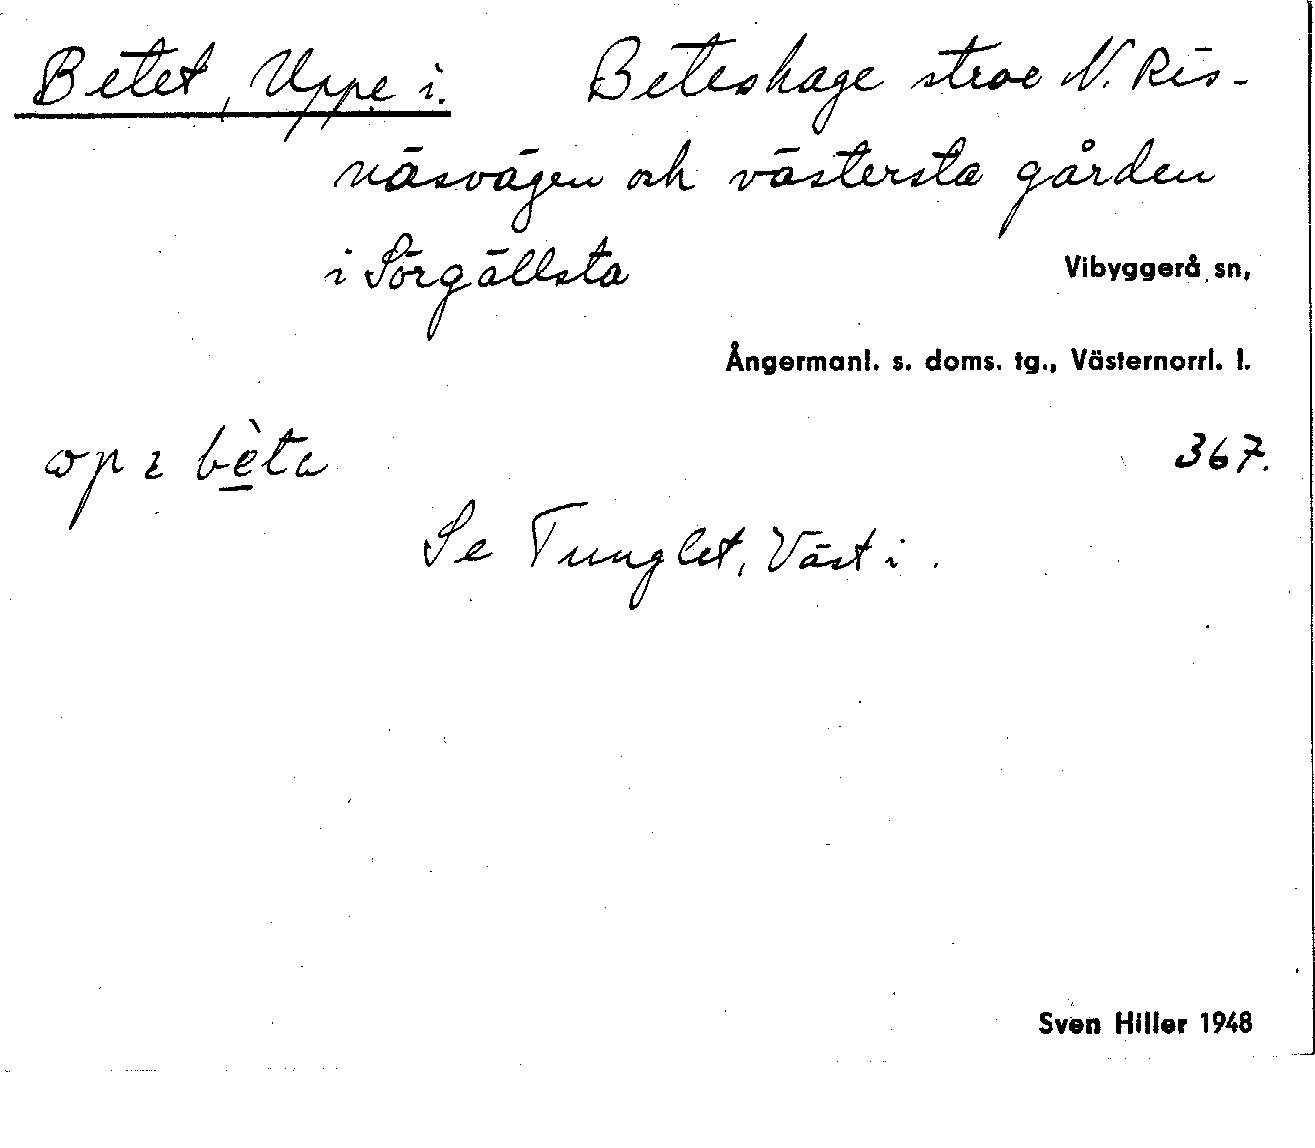 Betet, Uppe i. Beteshage strax N. Rēs-
näsvägen och västersta gården
i Sörgällsta
Vibyggerå sn,
Ångermanl. s. doms. tg., Västernorrl. l.
367.
Se Tunglet, Väst i.
Sven Hiller 1948